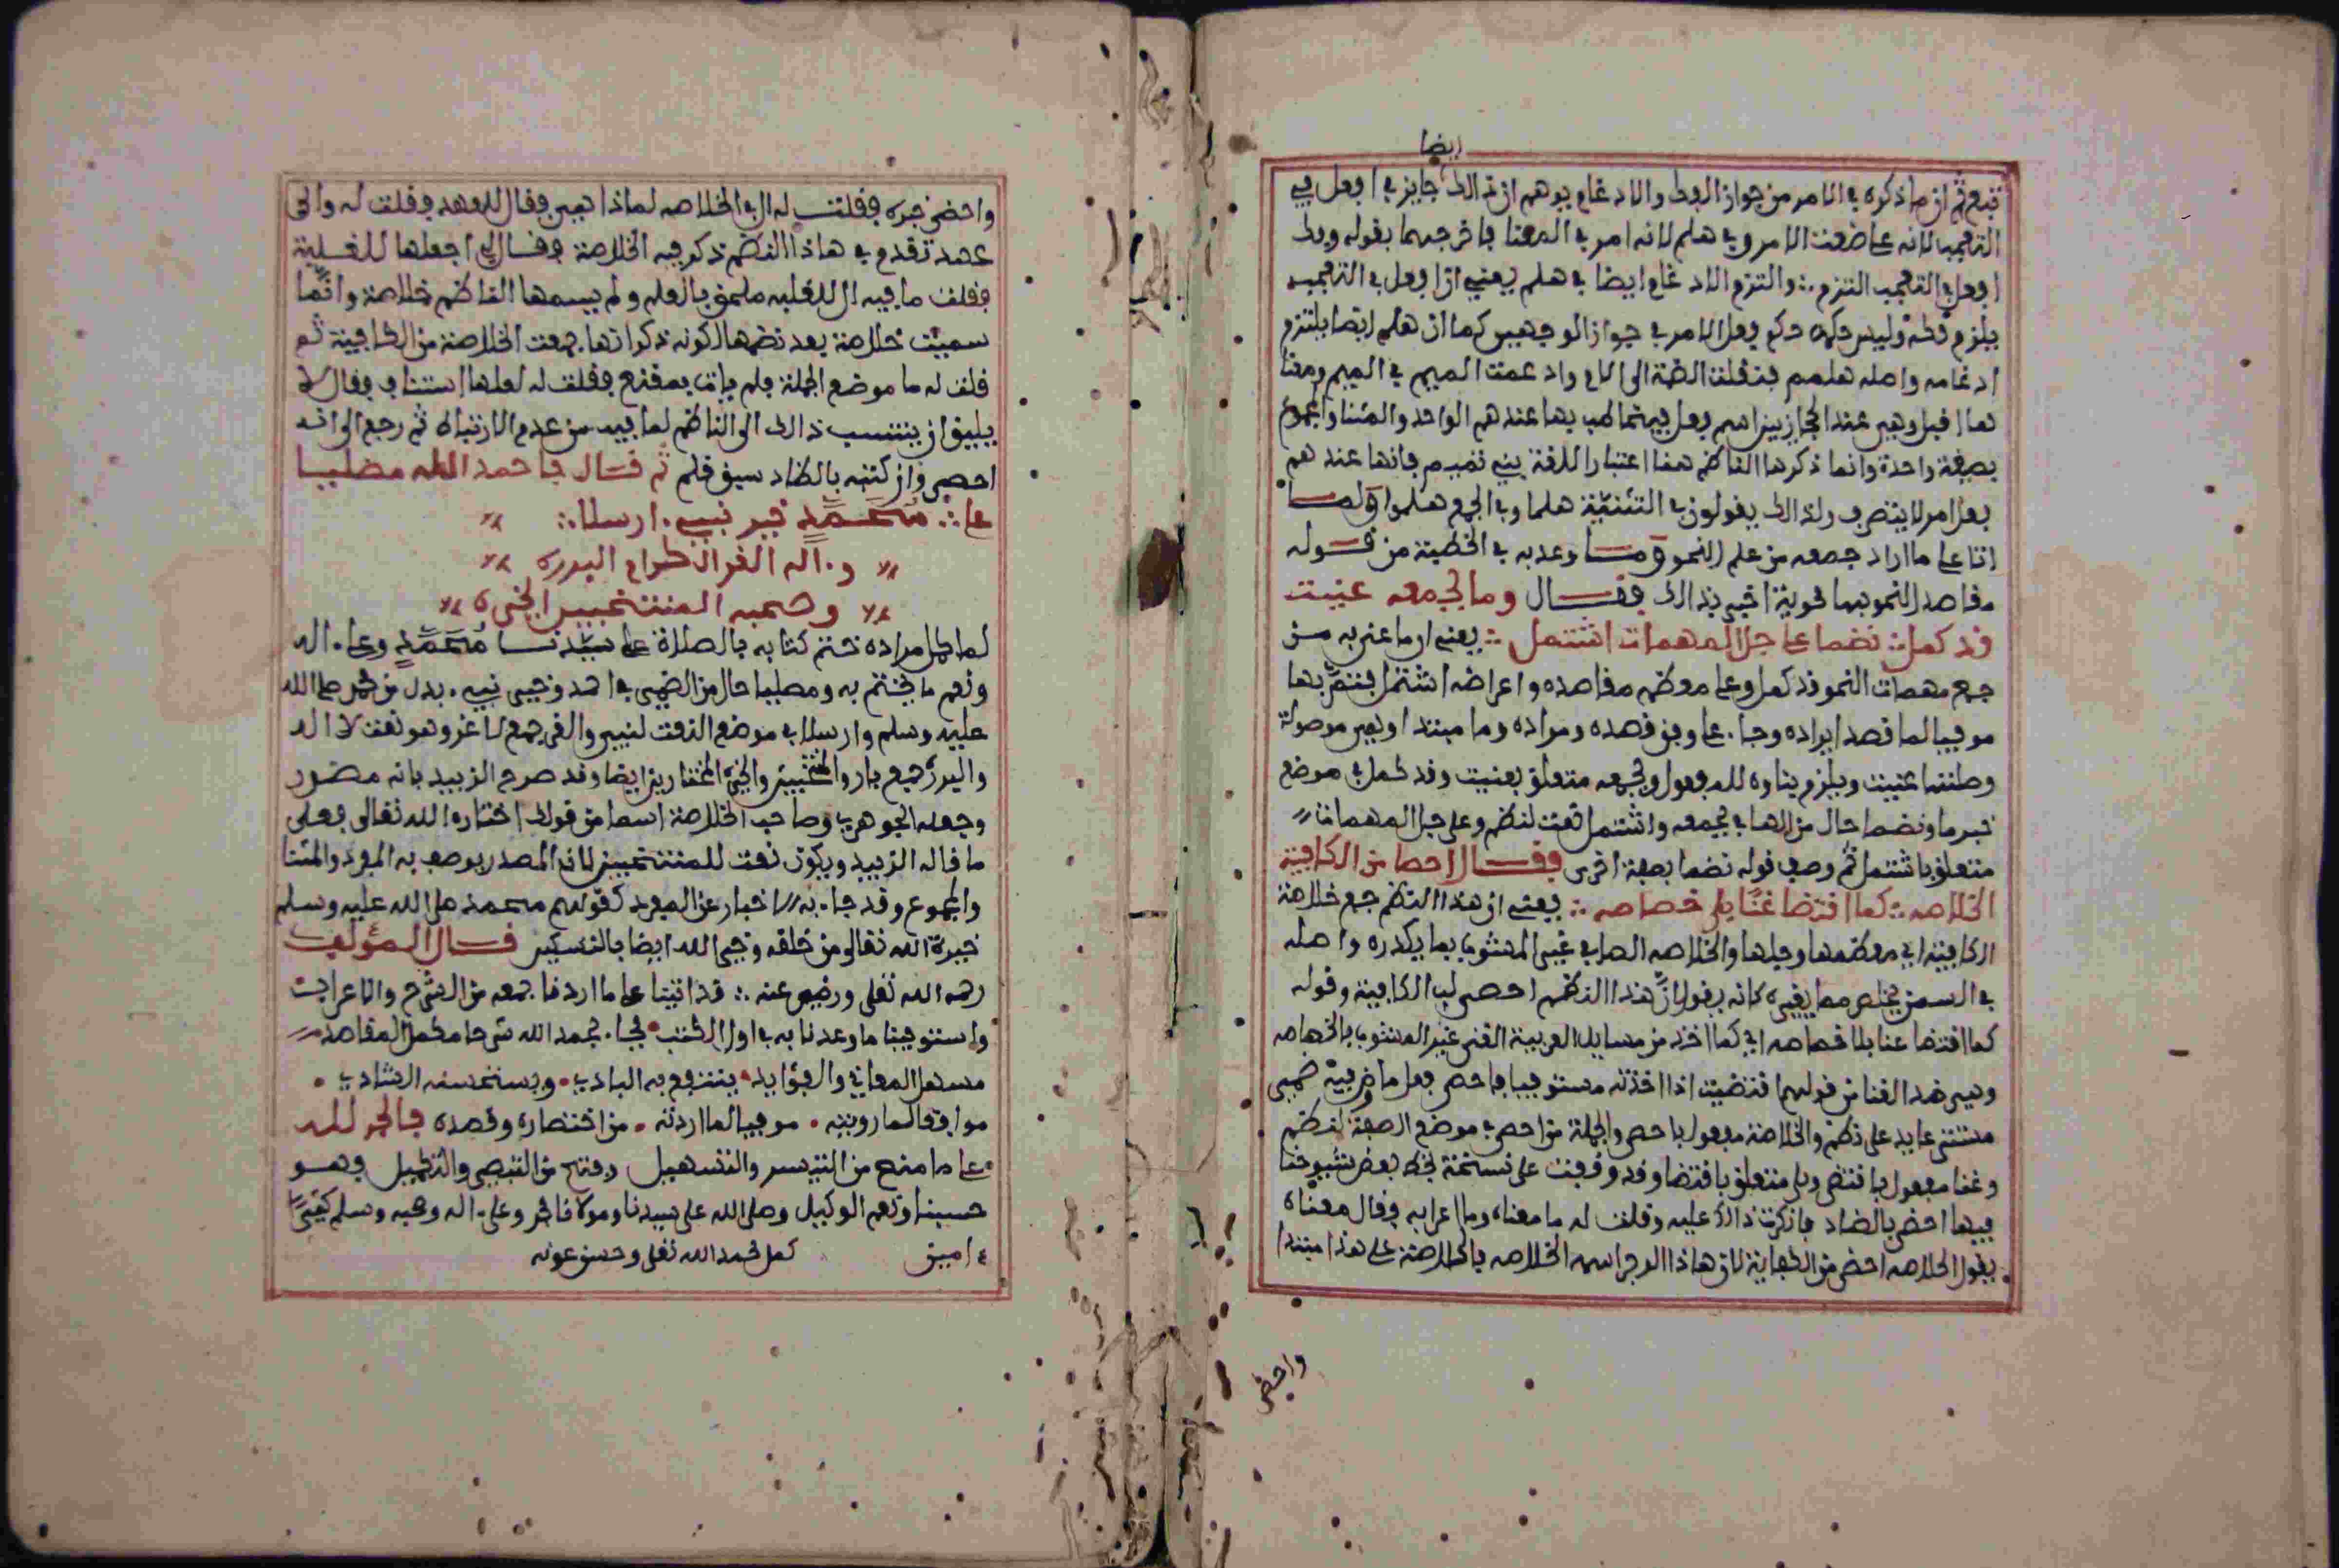 ايضا
تبع ثم ان ما ذكره في الامر من جواز الفك والادغام يوهم ان ذالك جايز في افعل في
التعجب لانه على صفت الامر وفي هلم لانه امر في المعنا فاخرجهما بقوله وفك
افعل في التعجب التزم ∴ والتزم الادغام ايضا في هلم يعني ان افعل في التعجب
يلزم فكه وليس حكمه حكم فعل الامر في جواز الوجهين كما ان هلم ايضا يلتزم
ادغامه واصله هلمم فنقلت الضمة الى اللام وادغمت الميم في الميم ومعنا
لها اقبل وهي عند الحجازيين اسم فعل فيخاطب بها عندهم الواحد والمثنا والمجموع
بصيغة واحدة وانما ذكرها الناظم هنا اعتبارا للغة بني تميم فانها عندهم
فعل امر لا يتصرف ولذالك يقولون في التثنية هلما وفي الجمع هلموا ولما
اتا على ما اراد جمعه من علم النحو وما وعد به في الخطبة من قوله
مقاصد النحو بها محوية اخبر بذالك فقال وما بجمعه عنيت
قد كمل ∴ نضما على جل المهمات اشتمل ∴ يعني ان ما عني به من
جمع مهمات النحو قد كمل وعلى معظم مقاصده واعراضه اشتمل فنضم بها
موفيا لما قصد ايراده وجاء على وفق قصده ومراده وما مبتدا وهي موصولة
وصلتها عنيت ويلزم بناوه للمفعول وبجمعه متعلق بعنيت وقد كمل في موضع
خبر ما ونضما حال من الها في بجمعه واشتمل نعت لنظم وعلى جل المهمات
متعلق باشتمل ثم وصف قوله نضما بصفة اخرى فقال احصا من الكافية
الخلاصه ∴ كما اقتضا غنا بلا خصاصه ∴ يعني ان هذا النظم جمع خلاصة
الكافية اي معظمها وجلها والخلاصه الصافي غير المشوب بما يكدره واصله
في السمن يخلص مما يغيره كانه يقول ان هذا النظم احصى لب الكافية وقوله
كما اقتضا غنا بلا خصاصه اي كما اخذ من مسايل العربية الغنى غير المشوب بالخصاصه
وهي ضد الغنا من قولهم اقتضيت اذا اخذته مستوفيا فاحصى فعل ماض وفيه ضمير
مستتر عايد على نظم والخلاصة مفعول باحصى والجملة من احصى في موضع الصفة لنظم
وغنا مفعول باقتضى وبلا متعلق باقتضا وقد وقفت على نسخة بخط بعض شيوخنا
فيها احضى بالضاد فانكرت ذالك عليه وقلت له ما معناه وما اعرابه فقال معناه
يقول الخلاصه احضى من الكافية لان هاذا الرجز اسمه الخلاصه فالخلاصة على هذا مبتدا
واحضى
واحضى خبره فقلت له ال في الخلاصه لماذا هيى فقال للعهد فقلت له واي
عهد تقدم في هاذا النظم ذكر فيه الخلاصة فقال لي اجعلها للغلبة
فقلت ما فيه ال للغلبه ملحق بالعلم ولم يسمها الناظم خلاصة وانما
سميت خلاصة بعد نضمها لكونه ذكر انها جمعت الخلاصة من الكافية ثم
قلت له ما موضع الجملة فلم يات بمقنع فقلت له لعلها استئناف فقال لا
يليق ان ينتسب ذالك الى الناظم لما فيه من عدم الارتباط ثم رجع الى انه
احصى وان كتبه بالضاد سبق قلم ثم قال فاحمد الله مصليا
على ∴ محمد خير نبي ارسلا ∴
وءاله الغر الكرام البرره
وصحبه المنتخبين الخيره
لما كمل مراده ختم كتابه بالصلاة على سيدنا محمد وعلى ءاله
ونعم ما يختم به ومصليا حال من الضمير في احمد وخير نبي بدل من محمد صلى الله
عليه وسلم وارسلا في موضع النعت لنبي والغر جمع لاغر وهو نعت لءاله
والبررة جمع بار والمنتخبين والخيرة المختارين ايضا وقد صرح الزبيد بانه مصدر
وجعله الجوهري وصاحب الخلاصة اسما من قولك اختاره الله تعالى فعلى
ما قاله الزبيد ويكون نعت للمنتخبين لان المصدر يوصف به المفرد والمثنا
والمجموع وقد جاء به الاخبار عن المفرد كقولهم محمد صلى الله عليه وسلم
خيرة الله تعالى من خلقه وخير الله ايضا بالتسكين قال المؤلف
رحمه الله تعلى ورضي عنه ∴ قد اتينا على ما اردنا جمعه من الشرح والاعراب
واستوفينا ما وعدنا به في اول الكتب فجاء بحمد الله شرحا مكمل المقاصد
مسهل المعاني والفوايد ينتفع به البادي ويستحسنه الشادي
موافقا لما رويته موفيا لما اردته من اختصاره وقصده فالحمد لله
على ما منح من التيسر والتسهيل وفتح من التبصير والتكميل وهو
حسبنا ونعم الوكيل وصلى الله على سيدنا ومولانا محمد وعلى ءاله وصحبه وسلم كثيرا
ءامين كمل بحمد الله تعلى وحسن عونه